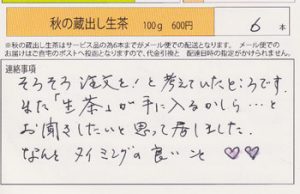 秋の蔵出し生茶 100g 600円 6本
※秋の蔵出し生茶はサービス品の為6本までがメール便での配送となります。 メール便での
お届けはご自宅のポストへ投函となりますので、代金引換と 配達日時の指定がかけられません。
連絡事項
そろそろ注文を!と考えていたところです。
また「生茶」が手に入るかしら…と
お聞きしたいと思って居ました。
なんと タイミングの良いこと ♡♡